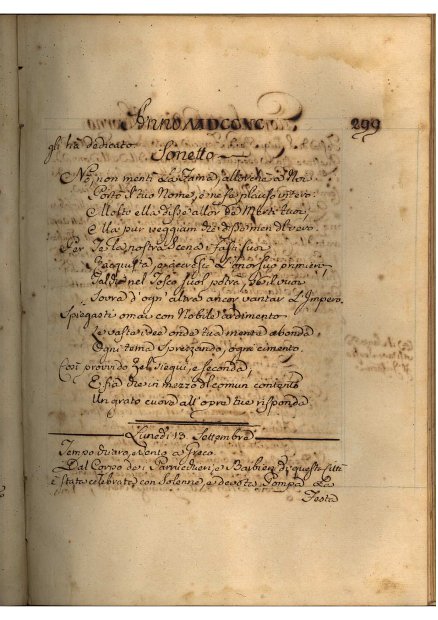 Anno MDCCXC
299
gli ha dedicato.
Sonetto
No, non mentì la Fama, allorchè a Noi
Portò il tuo Nome, e ne fa plauso intero:
Molto ella disse allor de' Merti tuoi,
E la pur veggiam che disse men del vero.
Per Te la nostra Scena i fasti suoi
Racquista, e accresce l'onor suo primiero,
Talchè nel Tosco suol potrà, se il vuoi
Sovra d'ogn' altra ancor vantar l'Impero.
Spiegasti omai con Nobile ardimento
Le vaste idee onde tua mente abonda,
Ogni tema sprezzando, ogni cimento.
Così provvido Zel siegui, e seconda,
E fia che in mezzo al comun contento
Un grato cuore all'opre tue risponda
Lunedì 13 Settembre
Tempo chiaro, e Vento a Greco.
Dal Corpo dei Parrucchieri, e Barbieri di questa Città
è stata celebrata con solenne, e devota Pompa la
Festa